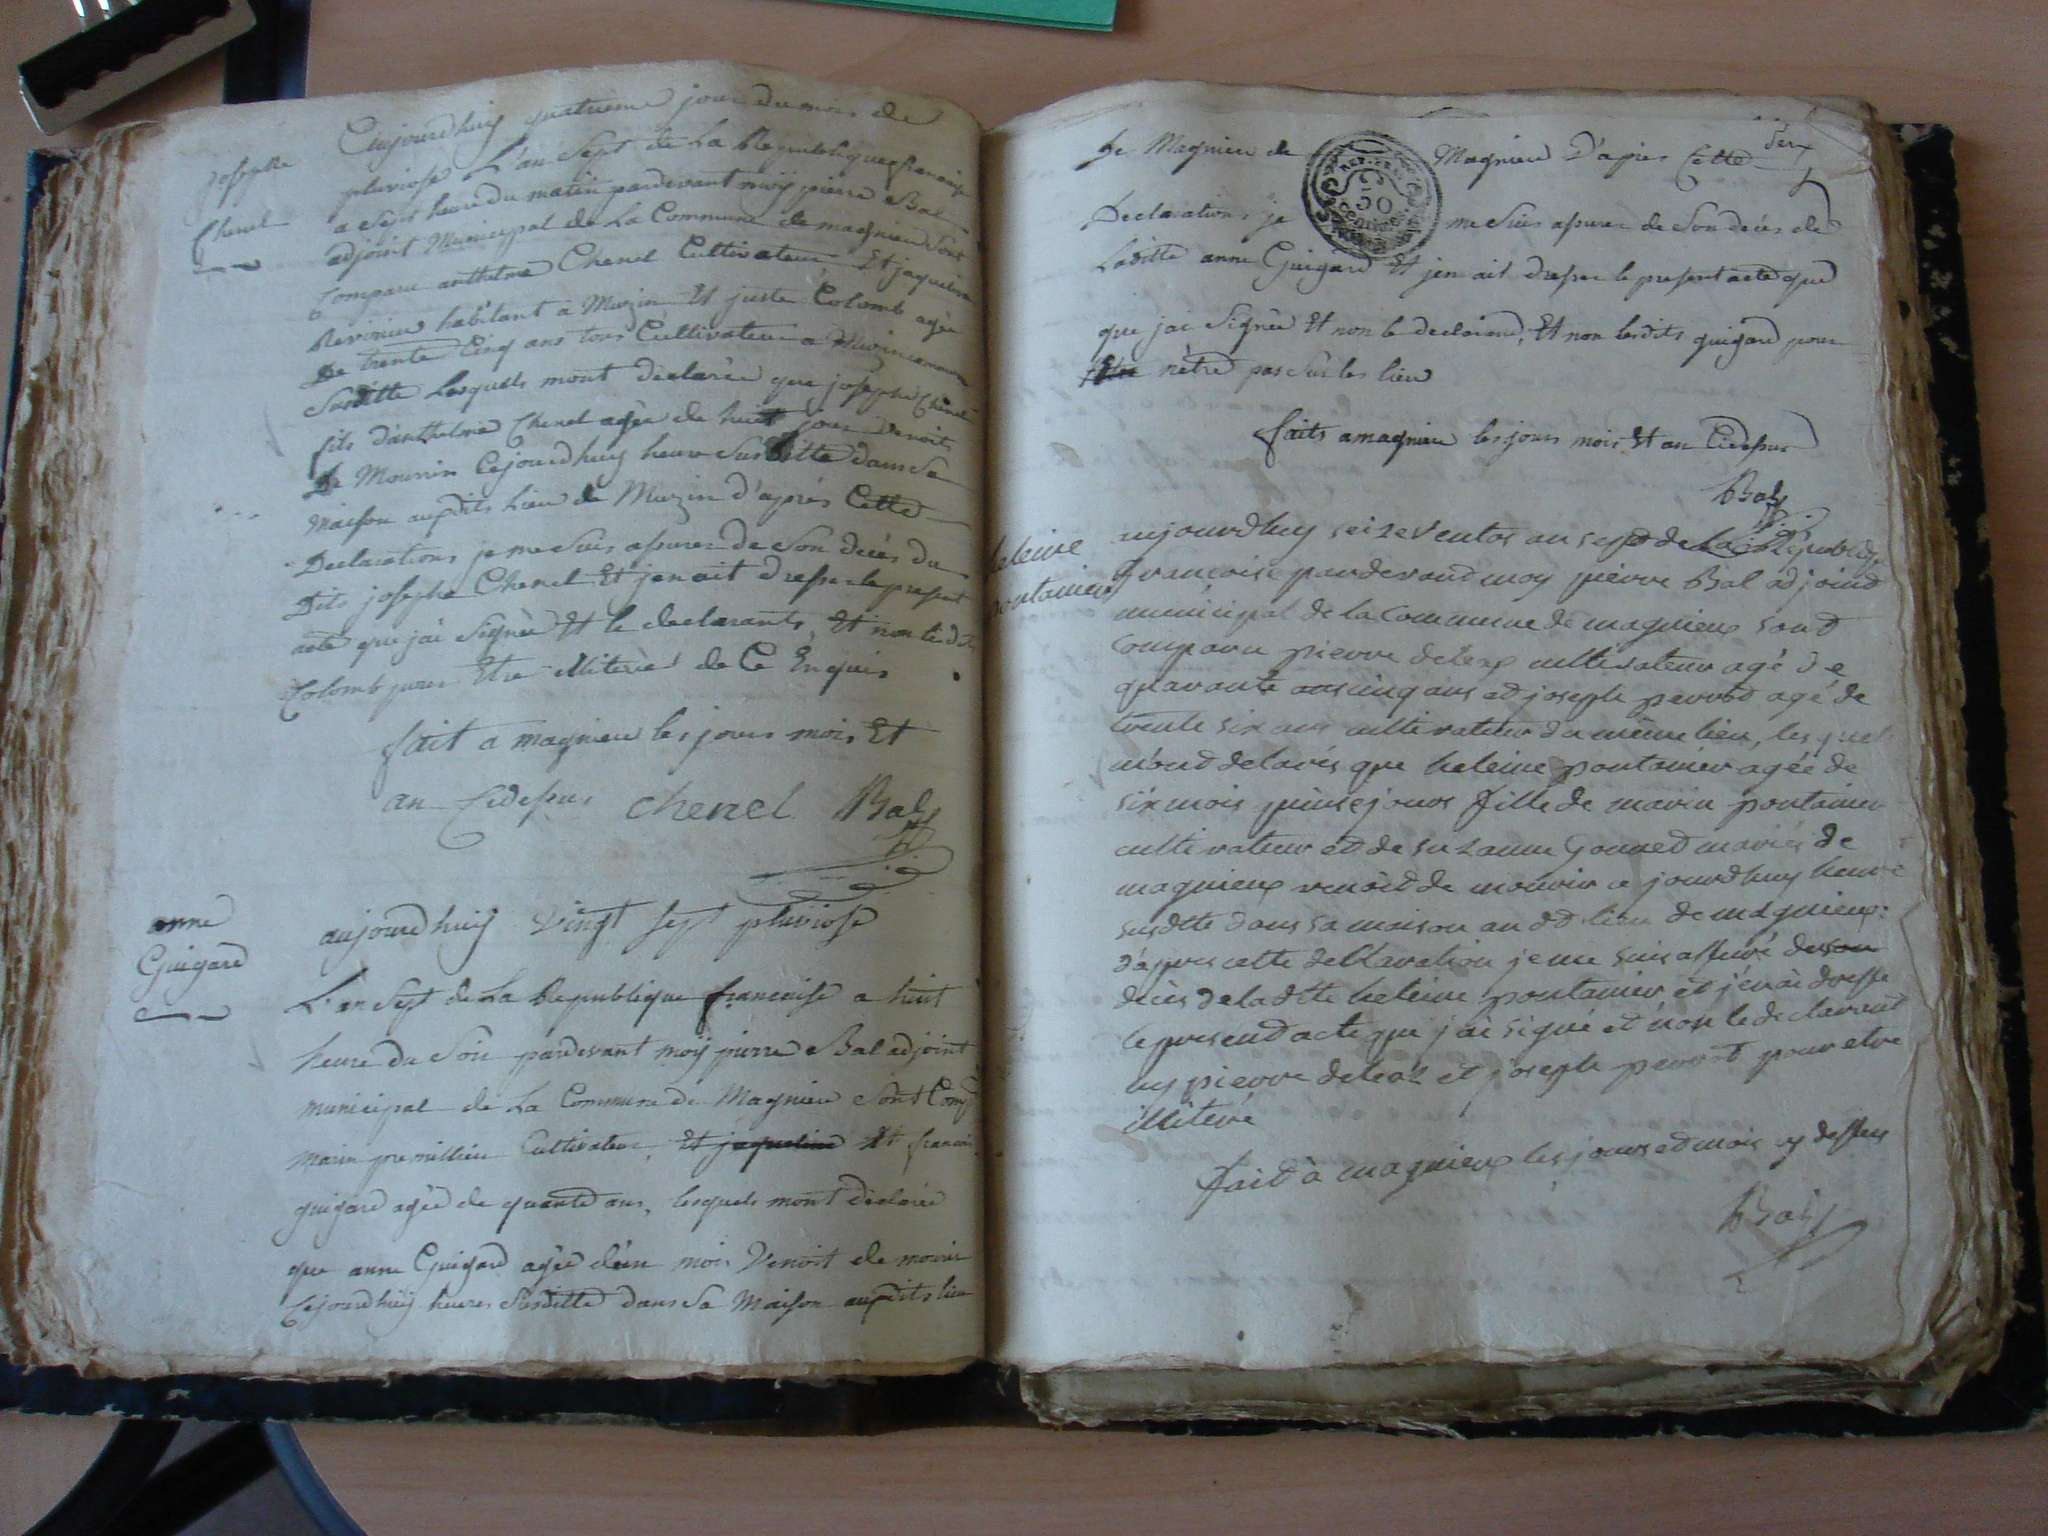 josephe
Chenel
Cejourdhuy quatrieme jour du mois de
pluviose L'an Sept de La Republique francaise
a Sept heure du matin pardevant moÿ pierre Bal
adjoint Municipal de La Commune de magnieu Sont
Compare anthelme Chenel Cultivateur Et jaqueline
Revirieu habitant a Muzin Et juste Colomb agée
De trente Cinq ans tous Cultivateur a Muzin
Susditte Lesquels mont déclarée que josephe Chenel
fils d'anthelme Chenel agée de huit jour venoit
De Mourrir Cejourdhuy heure Susditte dans Sa
Maison audits lieu de Muzin d'après Cette
Declarations je me Suis assurer de Son decés du
Dits josephe Chenel Et jen ait dresser le present
acte que jai Signée Et le declarants Et non le dit
Colomb pour Etre illiterée de Ce Enquis
fait a magnieu les jours mois Et
an Cidessus Chenel Bal
anne
Guigard
aujourdhuij Vingt Sept pluviose
L'an Sept de La Republique francaise a huit
heure du Soir pardevant moÿ pierre Bal adjoint
municipal de La Commune de Magnieu Sont Comp
Marin premillieu Cultivateur, Et jaqueline Et francois
guigard agée de quarante ans, lesquels mont declarée
que anne Guigard agée d'un mois Venoit de mourir
Cejourdhuij heures Susditte dans Sa Maison audits lieu
De Magnieu de Magnieu D'apres Cette
REP. FRA. 50 centimes
Declarations je me Suis assurer de Son decés de
Laditte anne Guigard Et jen ait dresser le present acte que
que jai Signée Et non le declarand, Et non lesdits guigard pour
Etre nêtre pas Sur les lieu
faits a magnieu les jours mois Et an Cidessus
Bal
heleine
pontanier
aujourdhuy seize ventos an sept de la Republiq
francoise pardevand moy pierre Bal adjoind
municipal de la commune de magnieux sond
comparu pierre deleaz cultivateur agé de
quarante ans cinq ans et joseph perrod agé de
trente six ans cultivateur du même lieu, les quel
m'ond delarés que heleine pontanier agée de
six mois quinse jours fille de marin pontanier
cultivateur et de suzanne gonned mariés de
magnieux venoid de mourir ce jourdhuy heure
susdite dans sa maison au dd lieu de magnieux:
d'apres cette declaration je me suis assuré de son
decès de ladite heleine pontanier et j'en ai dressé
le presend acte que j'ai signé et non le declarant
ny pierre deleaz et joseph perrod pour etre
illiteré
faid à magnieux les jours et mois cy dessus
Bal